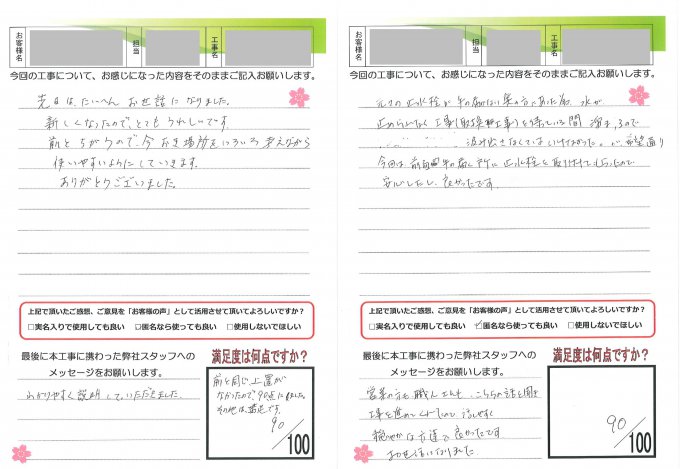 お客様名
担当
工事名
今回の工事について、お感じになった内容をそのままご記入お願いします。
先日は、たいへんお世話になりました。
新しくなったので、とてもうれしいです。
前とちがうので、今、おき場所をいろいろ考えながら
使いやすいようにしていきます。
ありがとうございました。
上記で頂いたご感想、ご意見を「お客様の声」として活用させて頂いてよろしいですか？
□実名入りで使用しても良い ☑匿名なら使っても良い □使用しないでほしい
最後に本工事に携わった弊社スタッフへの
メッセージをお願いします。
わかりやすく説明していただきました。
満足度は何点ですか？
前と同じ上置が
なかったので、90点にしました。
その他は満足です。
90
/100
お客様名
担当
工事名
今回の工事について、お感じになった内容をそのままご記入お願いします。
元々の止水栓が手の届かない奥の方にあった為、水が
止められなく工事(取換工事)を待っている間 溜まるので
汲み出さなくてはいけなかった。が、希望通り
今回は前面の手の届く所に止水栓を取り付けて下さったので
安心したし、良かったです。
上記で頂いたご感想、ご意見を「お客様の声」として活用させて頂いてよろしいですか？
□実名入りで使用しても良い ☑匿名なら使っても良い □使用しないでほしい
最後に本工事に携わった弊社スタッフへの
メッセージをお願いします。
営業の方も職人さんも、こちらの話を聞き
工事を進めてくれたので、話しやすく
穏やかな方達で良かったです。
お世話になりました。
満足度は何点ですか？
90
/100